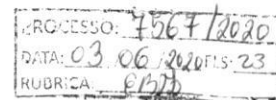 PROCESSO: 7567/2020
DATA: 03 06 /2020 FLS: 23
RUBRICA: